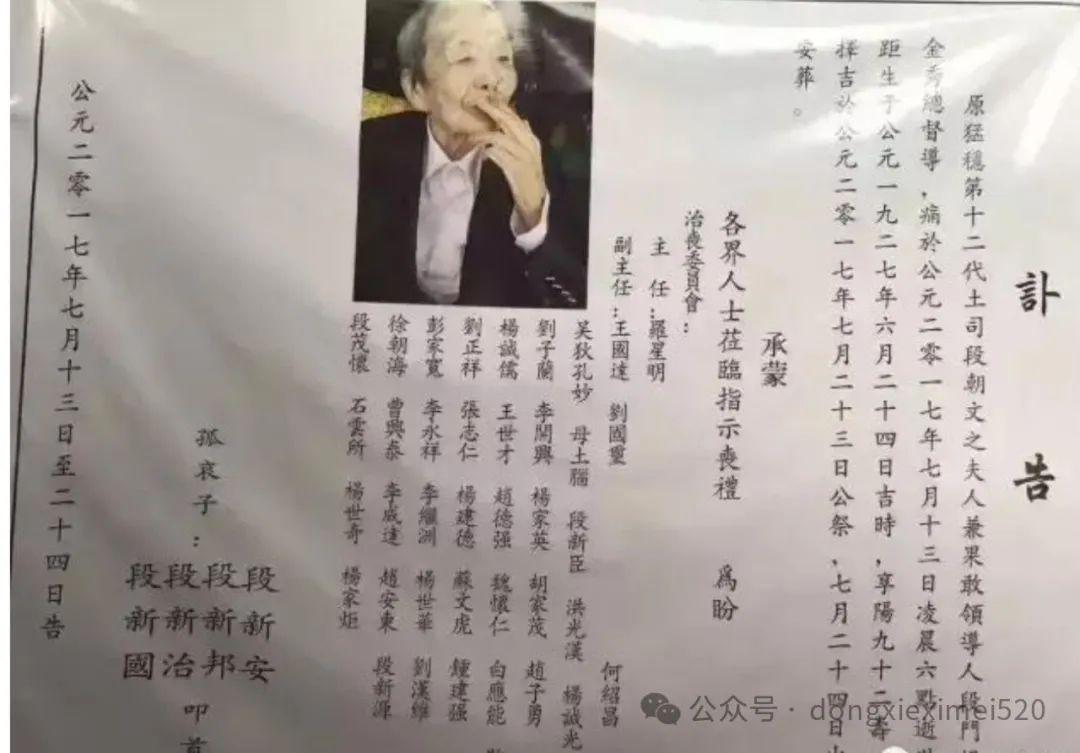 訃告
原猛穩第十二代土司段朝文之夫人兼果敢領導人段門楊
金秀總督導，痛於公元二零一七年七月十三日凌晨六點逝世
距生于公元一九二七年六月二十四日吉時，享陽九十二壽
擇吉於公元二零一七年七月二十三日公祭，七月二十四日出
安葬。
承蒙
各界人士莅臨指示喪禮 爲盼
治喪委員會：
主任：羅星明
副主任：王國達 劉國璽 何紹昌
吴狄孔妙 母土腦 段新臣 洪光漢 楊誠光
劉子蘭 李開興 楊家英 胡家茂 趙子勇
楊誠儒 王世才 趙德强 魏懷仁 白應能
劉正祥 張志仁 楊建德 蘇文虎 鍾建强
彭家寬 李永祥 李繼洲 楊世華 劉漢維
徐朝海 曹興泰 李咸達 趙安東 段新源
段茂懷 石雲所 楊世奇 楊家炬
孤哀子：
段新安
段新邦
段新治
段新國
叩首
公元二零一七年七月十三日至二十四日告
公众号 · dongxieximei520